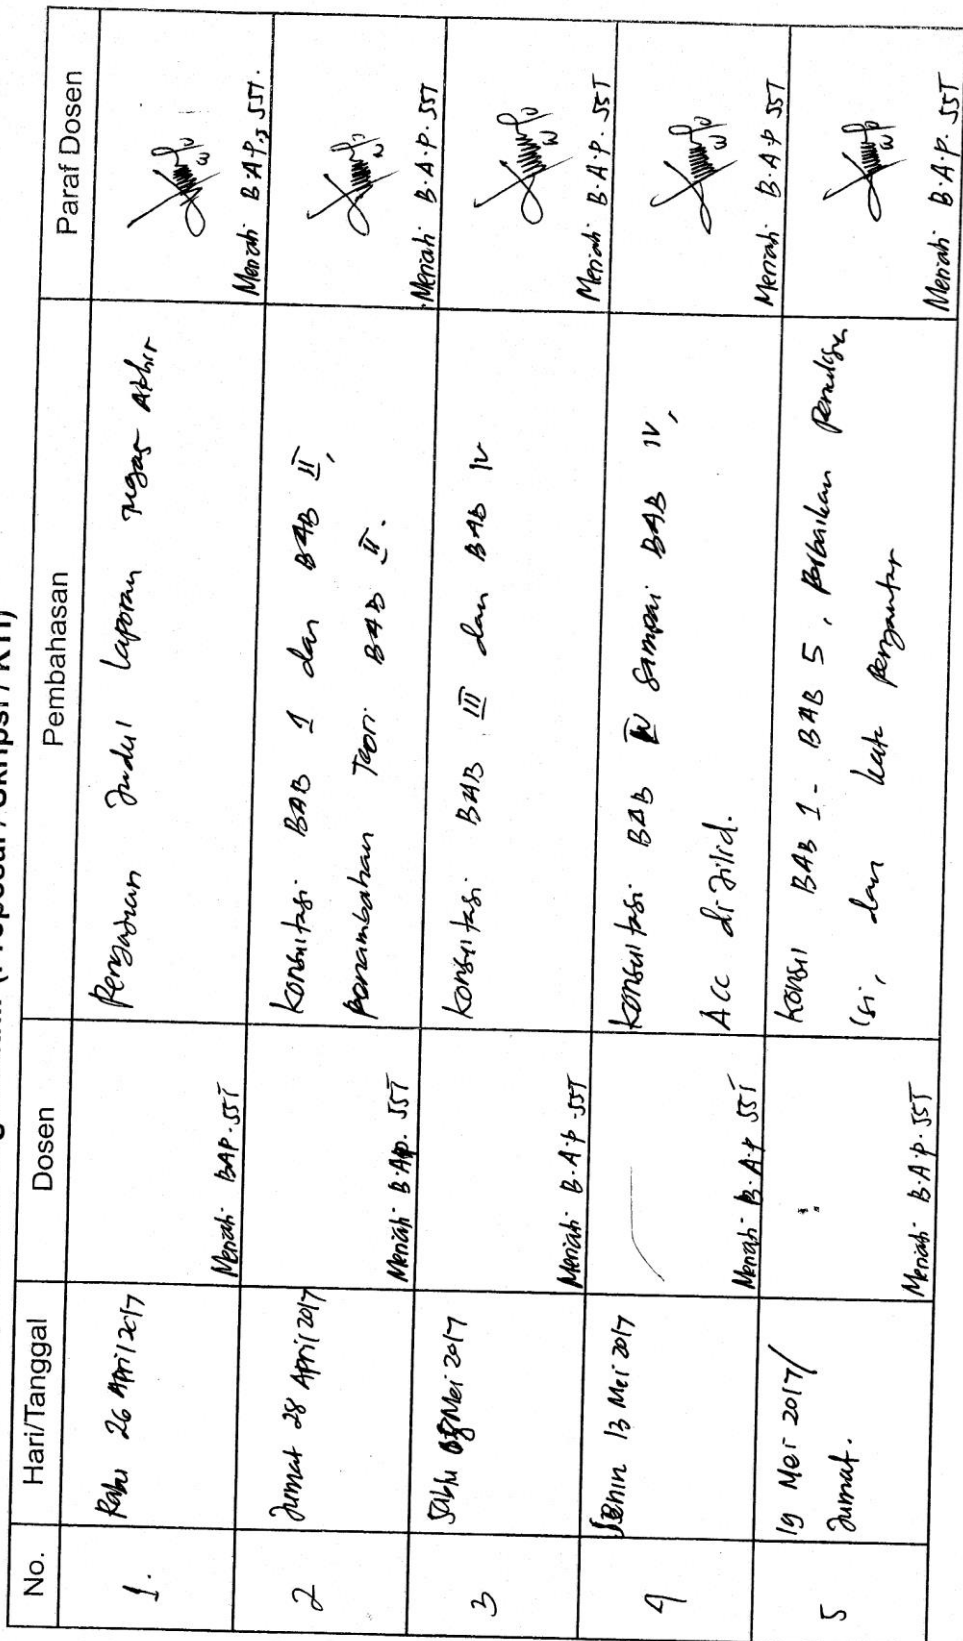 (Proposal / Skripsi / KTI)
No. Hari/Tanggal Dosen Pembahasan Paraf Dosen
1. Rabu 26 April 2017 Meriati BAP. SST Pengajuan Judul Laporan Tugas Akhir Meriati B.A.P, SST.
2 Jumat 28 April 2017 Meriati B.AP. SST Konsultasi BAB 1 dan BAB II,
penambahan Teori BAB II. Meriati B.A.P. SST
3 Sabtu Mei 2017 Meriati B.A.P. SST Konsultasi BAB III dan BAB IV Meriati B.A.P. SST
4 Senin 13 Mei 2017 Meriati B.A.P SST Konsultasi BAB IV Sampai BAB IV,
Acc di Jilid. Meriati B.A.P SST
5 19 Mei 2017/
Jumat. Meriati B.A.P. SST Konsul BAB 1 - BAB 5, Perbaikan Penulisan
isi, dan kata pengantar Meriati B.A.P. SST